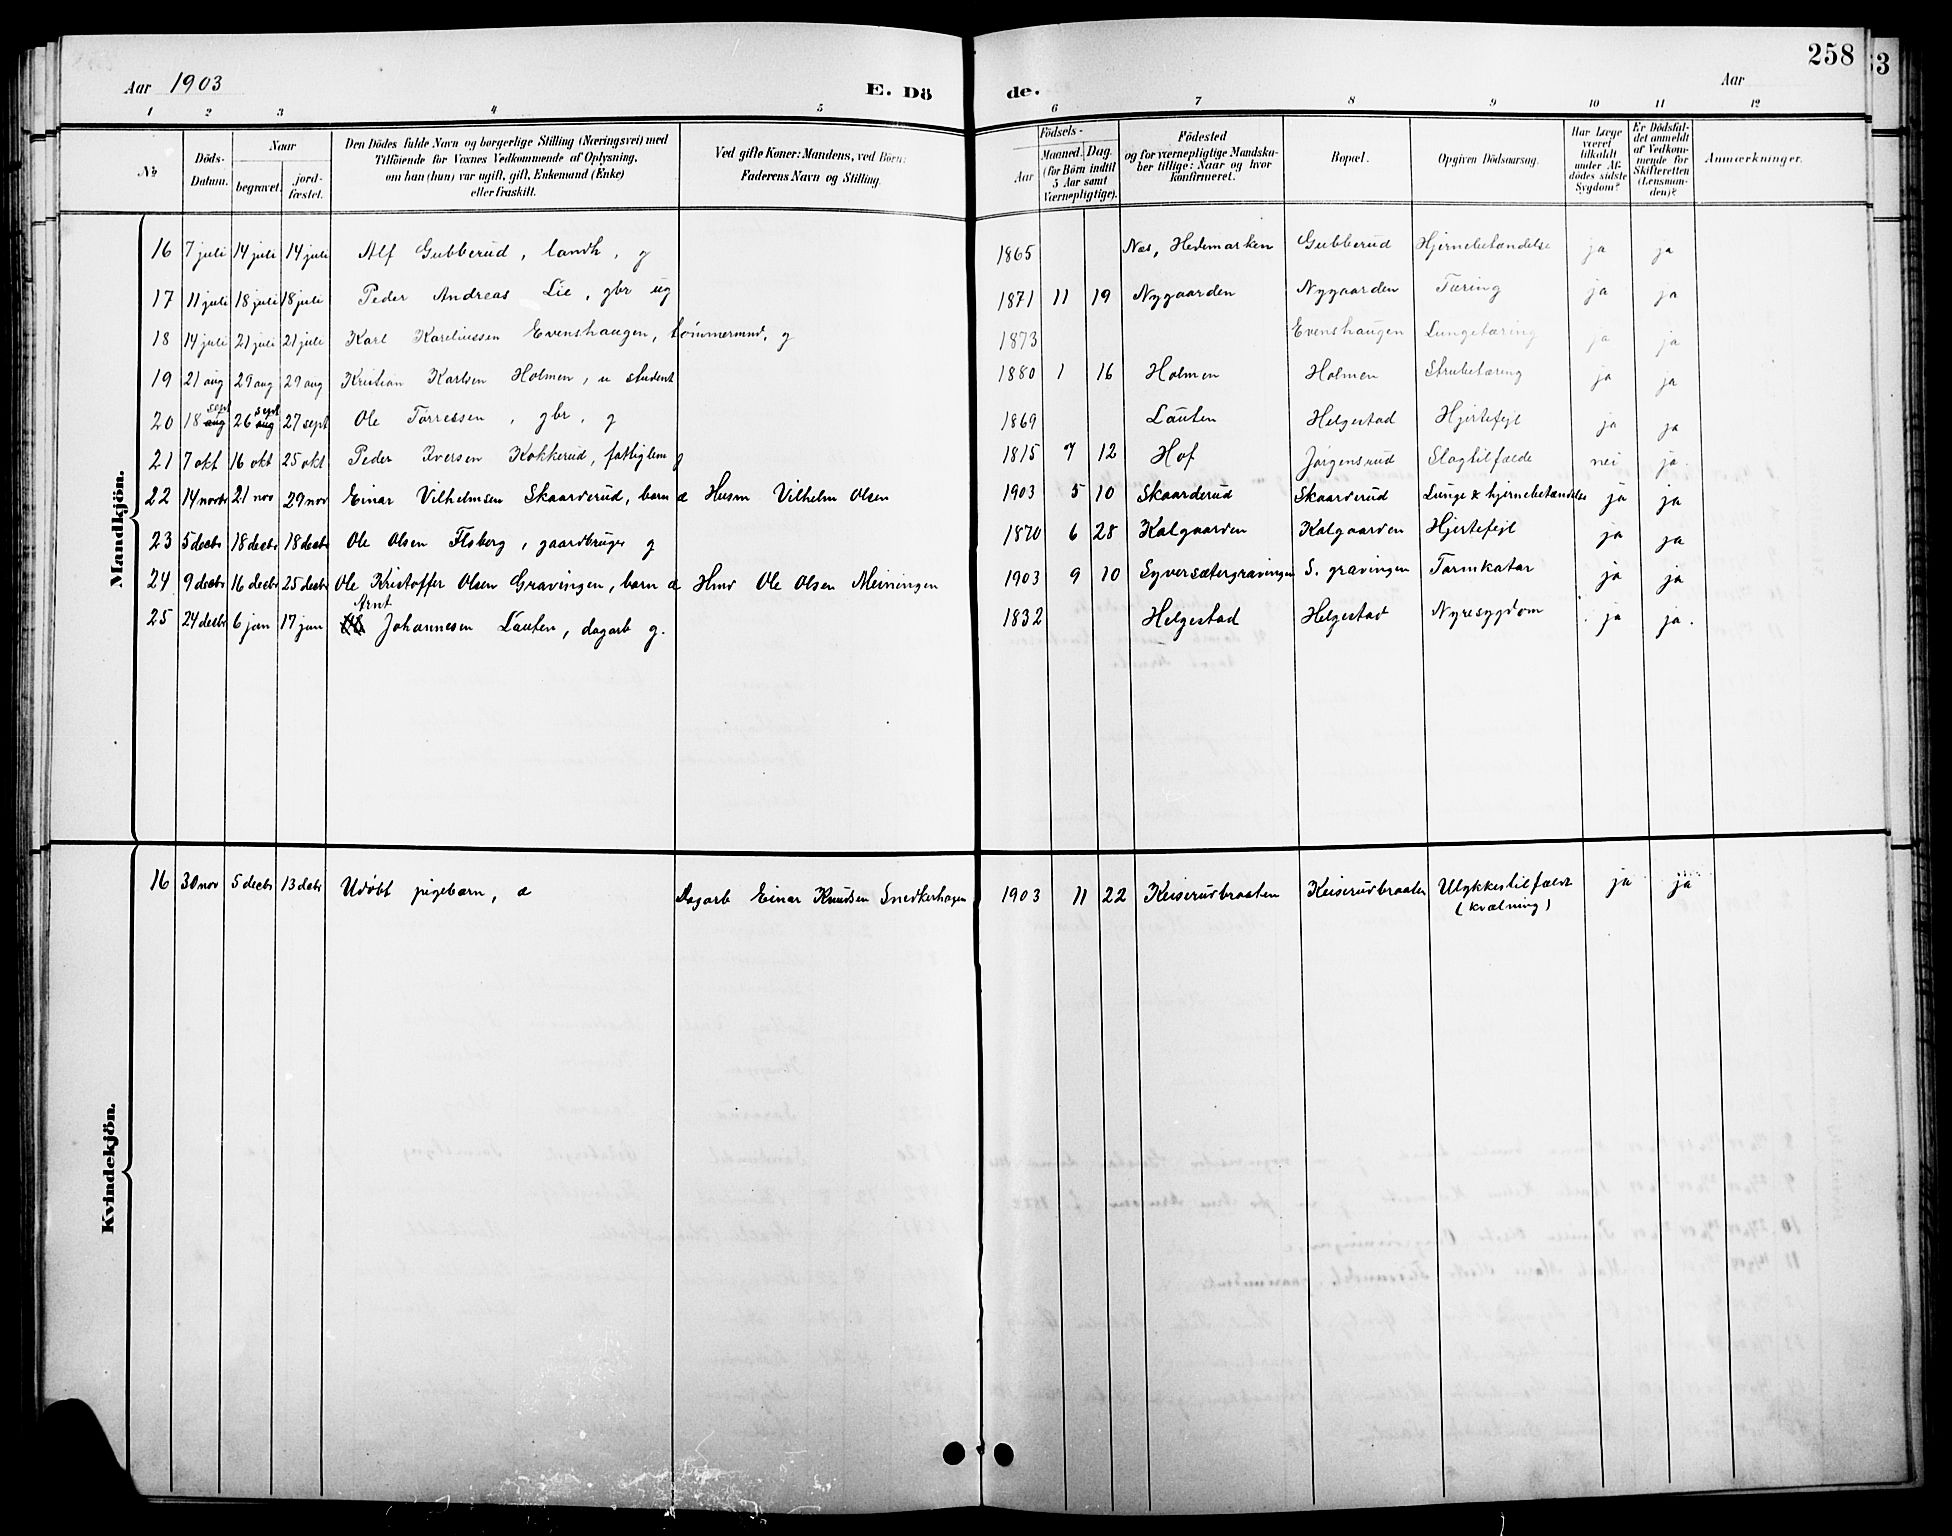 258
Aar 1903
E. Dö de.
Aar
1 2 3 4 5 6 7 8 9 10 11 12
No
Döds-Datum.
Naar
begravet.
jord-fæstet.
Den Dödes fulde Navn og borgerlige Stilling (Næringsvei) med
Tilföiende for Voxnes Vedkommende af Oplysning,
om han (hun) var ugift, gift, Enkemand (Enke)
eller fraskilt.
Ved gifte Koner: Mandens, ved Börn:
Faderens Navn og Stilling.
Födsels-
Aar
Maaned. Dag.
(for Börn indtil
5 Aar samt
Værnepligtige).
Födested
og for værnepligtige Mandska-
ber tillige: Naar og hvor
konfirmeret.
Bopæl.
Opgiven Dödsaarsag.
Har Læge
været
tilkaldt
under Af-
dödes sidste
Sygdom?
Er Dödsfal-
det anmeldt
af Vedkom-
mende for
Skifteretten
(Lensman-
den)?
Anmærkninger.
Mandkjön.
16 7 juli 14 juli 14 juli Alf Gubberud, landh, g 1865 Nes, Hedemarken Gubberud Hjernebetændelse ja ja
17 11 juli 18 juli 18 juli Peder Andreas Lie, gbr ug 1871 11 19 Nygaarden Nygaarden Tæring ja ja
18 14 juli 21 juli 21 juli Karl Kareliussen Evenshaugen, tømmermnd, g 1873 Evenshaugen Lungetæring ja ja
19 21 aug 29 aug 29 aug Kristian Karlsen Holmen, u student 1880 1 16 Holmen Holmen Strubetæring ja ja
20 18 sept 26 sept 27 sept Ole Torressen, gbr, g 1869 Løuten Helgestad Hjertefejl ja ja
21 7 okt 16 okt 25 okt Peder Iversen Kokkerud, fattiglem g 1815 7 12 Hof Jørgensrud Slagtilfælde nei ja
22 14 novbr 21 nov 29 nov Einar Vilhelmsen Skaarderud, barn æ Husm Vilhelm Olsen 1903 5 10 Skaarderud Skaarderud Lunge & hjernebetændelse ja ja
23 5 decbr 18 decbr 18 decbr Ole Olsen Flsberg, gaardbruger g 1870 6 28 Kalgaarden Kalgaarden Hjertefejl ja ja
24 9 decbr 16 decbr 25 decbr Ole Kristoffer Olsen Gravingen, barn æ Hmd Ole Olsen Meiningen 1903 9 10 Syversætergravingen S. gravingen Tarmkatar ja ja
25 24 decbr 6 jan 17 jan Arnt Johannesen Løuten, dagarb g. 1832 Helgestad Helgestad Nyresygdom ja ja.
Kvindekjön.
16 30 nov 5 decbr 13 decbr Udøbt pigebarn, æ Dagarb Einar Knudsen Snedkerhagen 1903 11 22 Keiserudbraaten Keiserudbraaten Ulykkestilfældt ja ja
(kvælning)